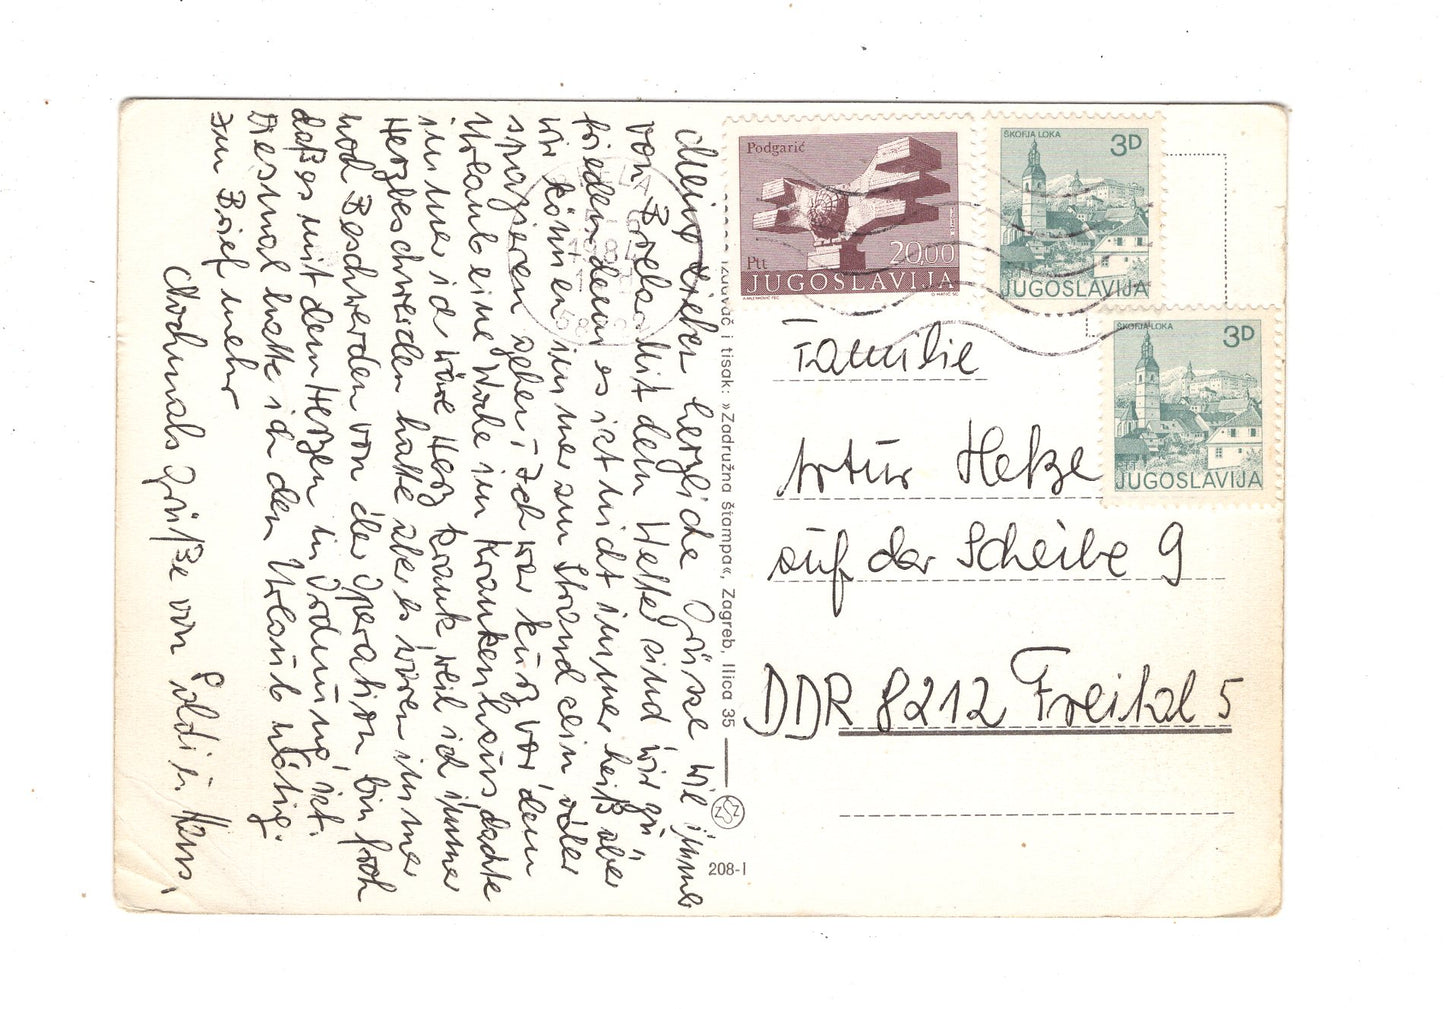 Meine Lieben herzliche Grüsse wie immer
von Brela. Mit dem Wetter sind wir zu
frieden denn es ist nicht immer heiß aber
wir können immer zum Strand sein oder
spazieren gehen. Ich war kurz vor dem
Urlaub eine Woche im Krankenhaus dachte
immer ich wäre Herz krank weil ich immer
Herzbeschwerden hatte aber es waren immer
noch Beschwerden von der Operation bin froh
daß es mit dem Herzen in Ordnung ist.
Diesmal hatte ich den Urlaub nötig.
im Brief mehr
Nochmals Grüße von Edi u. Hans.
Podgarić
20.00
Ptt
JUGOSLAVIJA
ŠKOFJA LOKA
3D
JUGOSLAVIJA
ŠKOFJA LOKA
3D
JUGOSLAVIJA
BRELA
1984
Izdavač i tisak: »Zadružna štampa«, Zagreb, Ilica 35
ZSZ
208-I
Familie
Artur Hetze
auf der Scheibe 9
DDR 8212 Freital 5